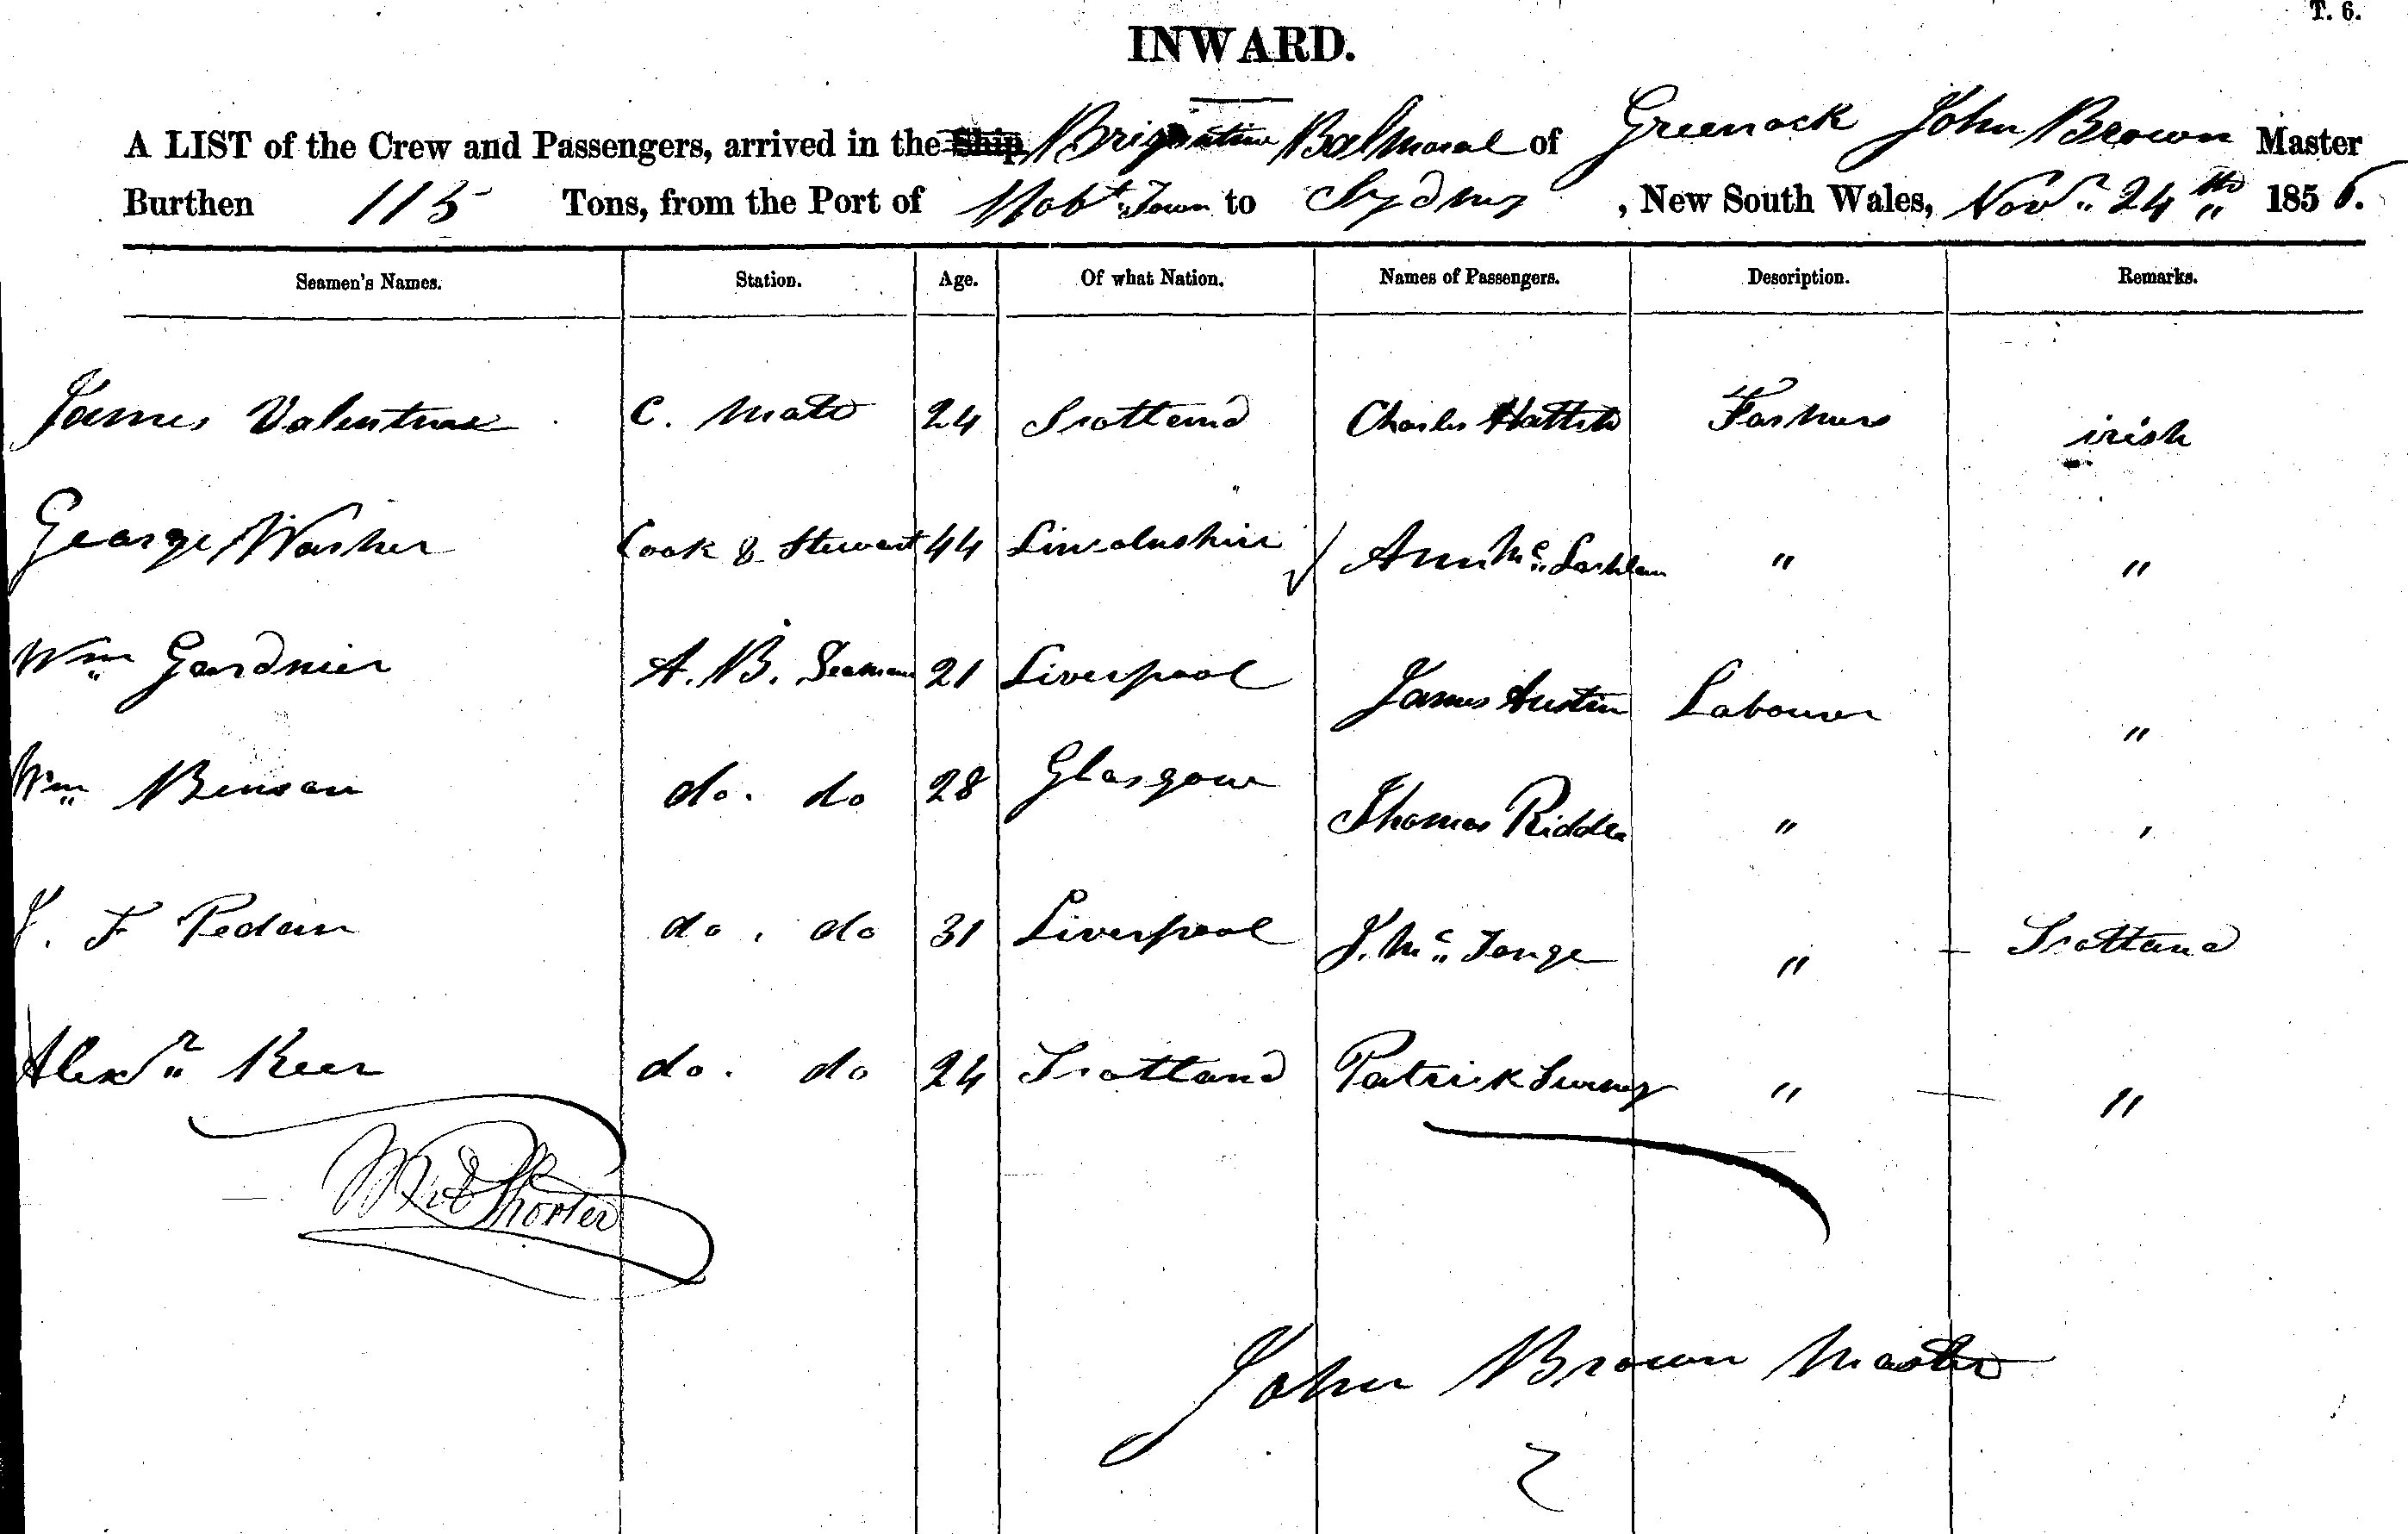 T. 6.
INWARD.
A LIST of the Crew and Passengers, arrived in the Ship Brigantine Balmoral of Greenock John Brown Master
Burthen 115 Tons, from the Port of Hobt Town to Sydney, New South Wales, Novr 24th 1856.
Seamen's Names. Station. Age. Of what Nation. Names of Passengers. Description. Remarks.
James Valentine C. Mate 24 Scotland Charles Farmers irish
George Washer Cook & Stewart 44 Lincolnshire Ann Mc Lachlan " "
Wm Gardner A. B. Seaman 21 Liverpool James Austin Labourer "
Wm Benson do. do 28 Glasgow Thomas Riddle " "
J. F Pedan do. do 31 Liverpool J. Mc Tonge " Scotland
Alexr Keer do. do 24 Scotland Patrick " "
Shorter
John Brown Master